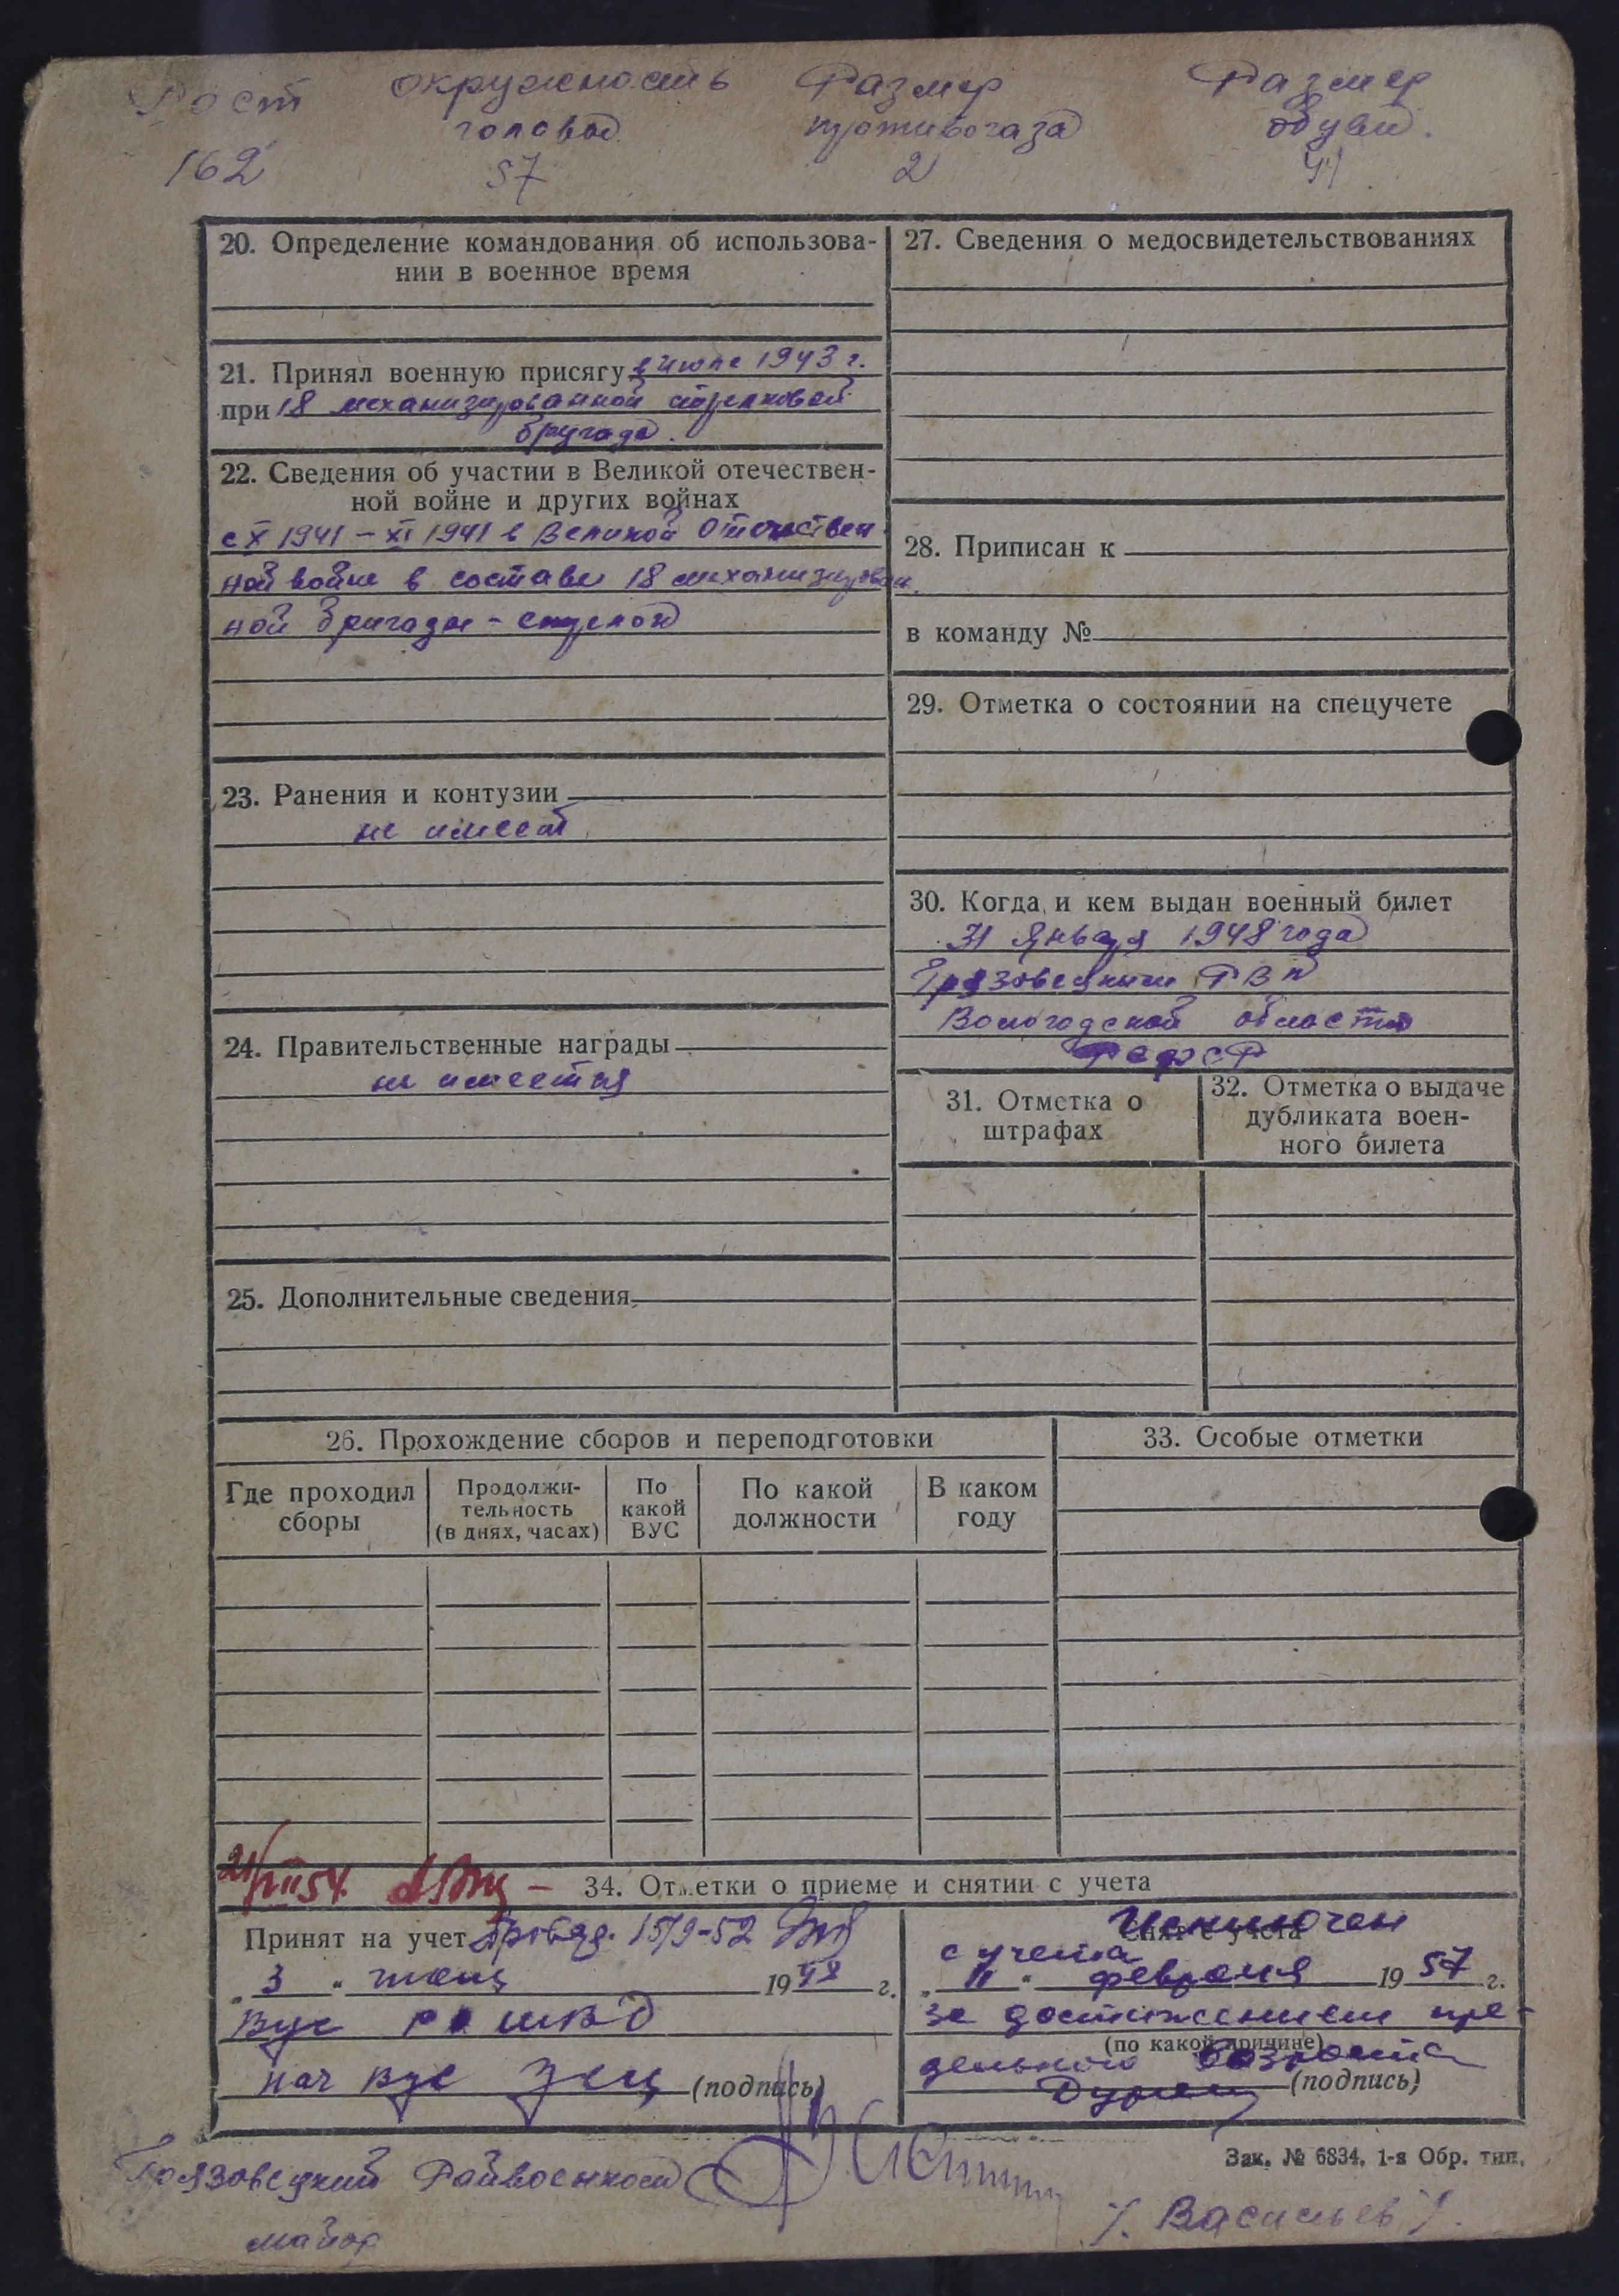 Рост окружность Размер Размер
головы противогаза обуви.
162 57 2 41
20. Определение командования об использова-
нии в военное время
21. Принял военную присягу в июле 1943 г.
при 18 механизированной стрелковой
бригаде.
22. Сведения об участии в Великой отечествен-
ной войне и других войнах
с X 1941 – XI 1941 в Великой Отечествен
ной войне в составе 18 механизирован
ной бригады –
23. Ранения и контузии
не имеет
24. Правительственные награды
не имеется
25. Дополнительные сведения
27. Сведения о медосвидетельствованиях
28. Приписан к
в команду №
29. Отметка о состоянии на спецучете
30. Когда и кем выдан военный билет
31 Января 1948 года
Грязовецким РВК
Вологодской области
РСФСР
31. Отметка о
штрафах
32. Отметка о выдаче
дубликата воен-
ного билета
26. Прохождение сборов и переподготовки
Где проходил
сборы
Продолжи-
тельность
(в днях, часах)
По
какой
ВУС
По какой
должности
В каком
году
33. Особые отметки
34. Отметки о приеме и снятии с учета
Принят на учет 15/9-52
„ 3 “ 19 г.
нач вус (подпись)
Исключен
Снят с учета
с учета
„ 11 “ февраля 19 57 г.
за достижением пре-
(по какой причине)
дельного возраста
(подпись)
Зак. № 6834. 1-я Обр. тип.
Грязовецкий Райвоенком
майор /. Васильев /.